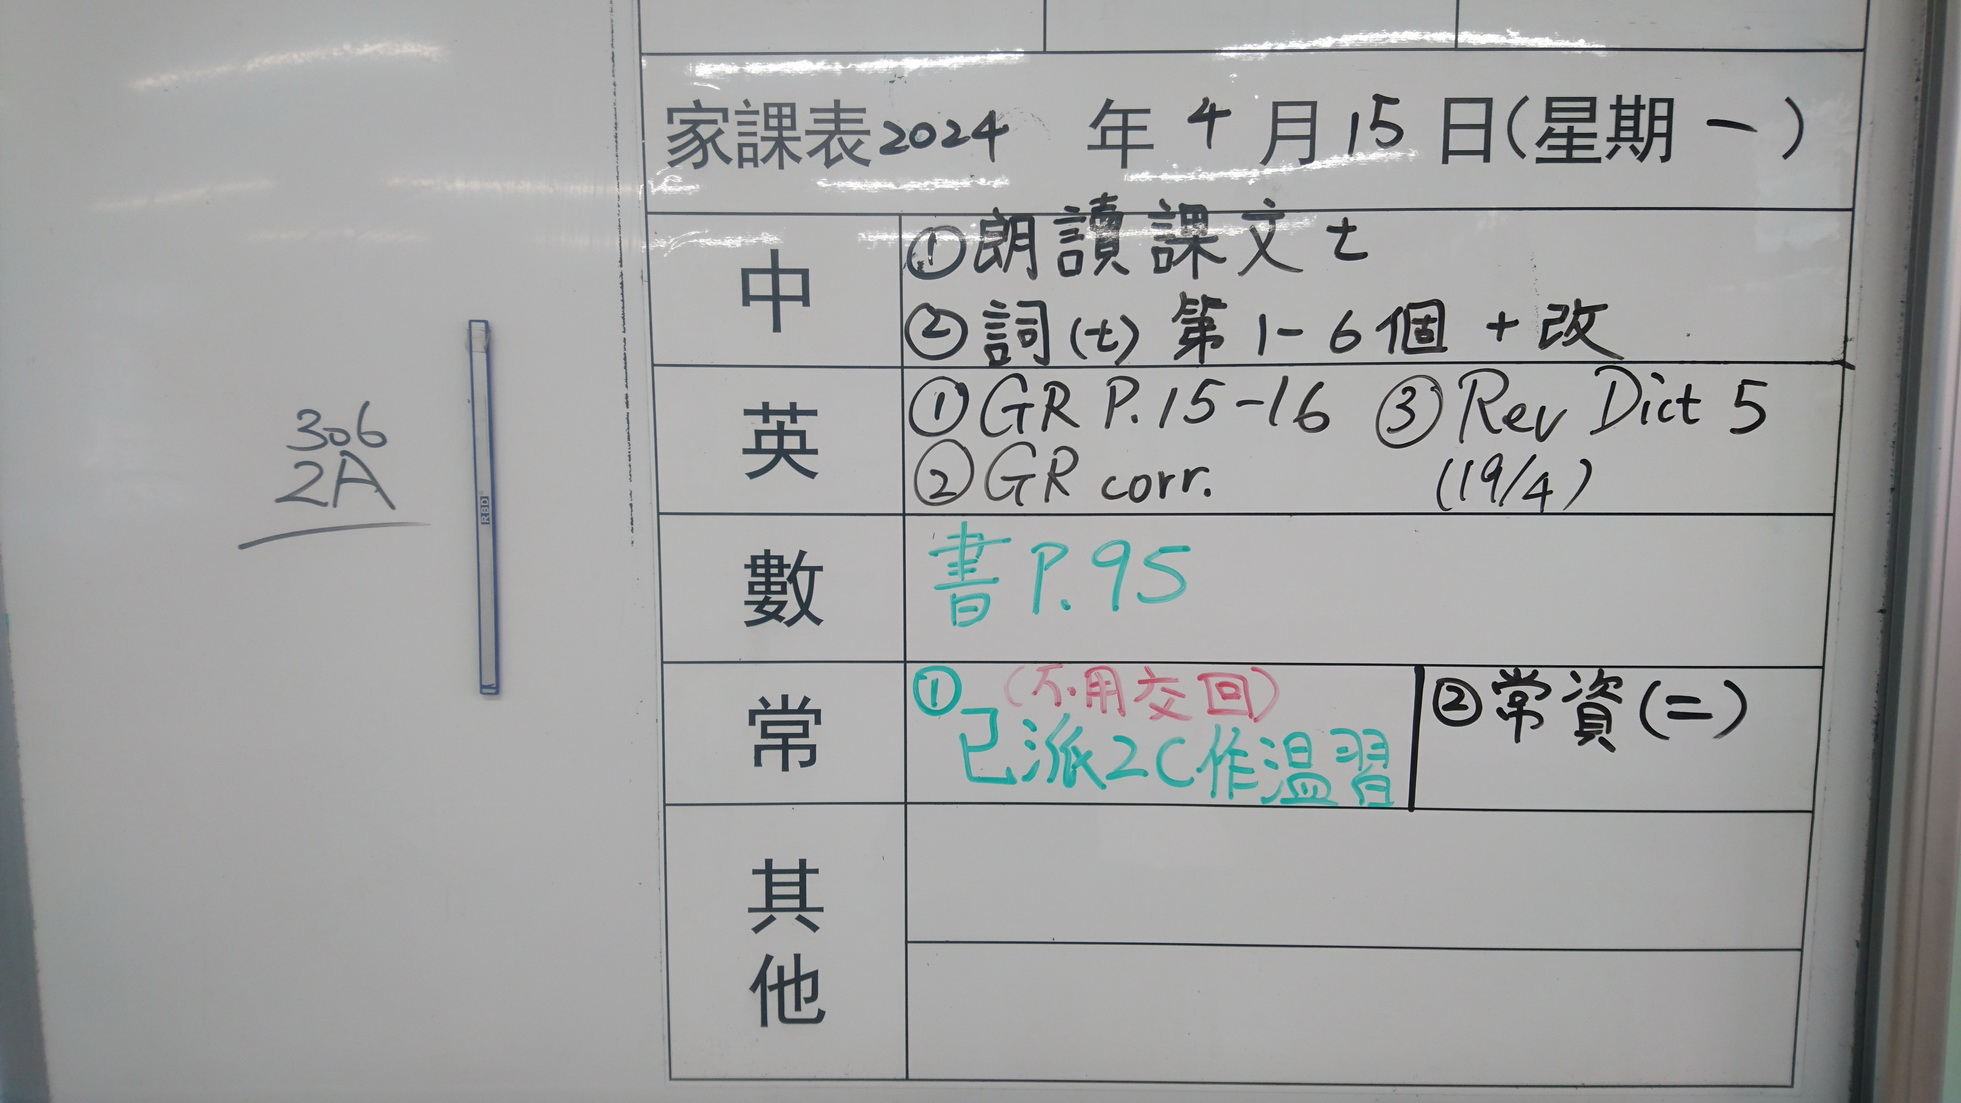 家課表2024 年 4 月 15 日(星期 一)
中
①朗讀課文七
②詞(七)第1-6個 + 改
英
①GR P.15-16 ③Rev Dict 5
②GR corr. (19/4)
數
書 P.95
常
① (不用交回) ②常資(二)
已派2C作温習
其
他
306
2A
RBD